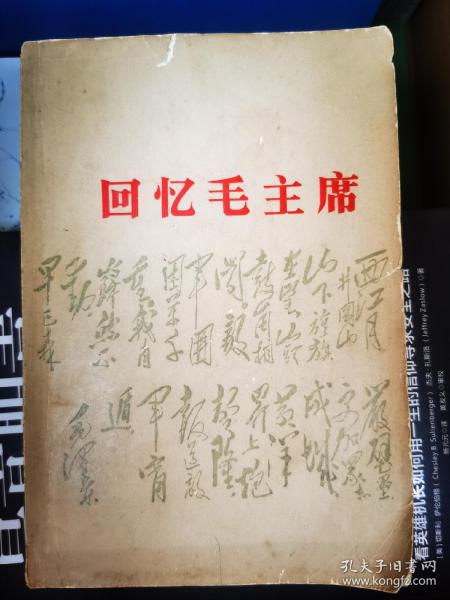 回忆毛主席
西江月
井冈山
山下旌旗
在望山头
鼓角相
闻敌
军围
困万千
重我自
岿然不
动
早已森
严壁垒
更加众志
成城
黄洋
界上炮
声隆
报道敌
军宵
遁
毛泽东
看英雄机长如何用一生的信仰寻求安全之路
(Chesley B. Sullenberger) 杰夫·扎斯洛 (Jeffrey Zaslow) 著
孔夫子旧书网